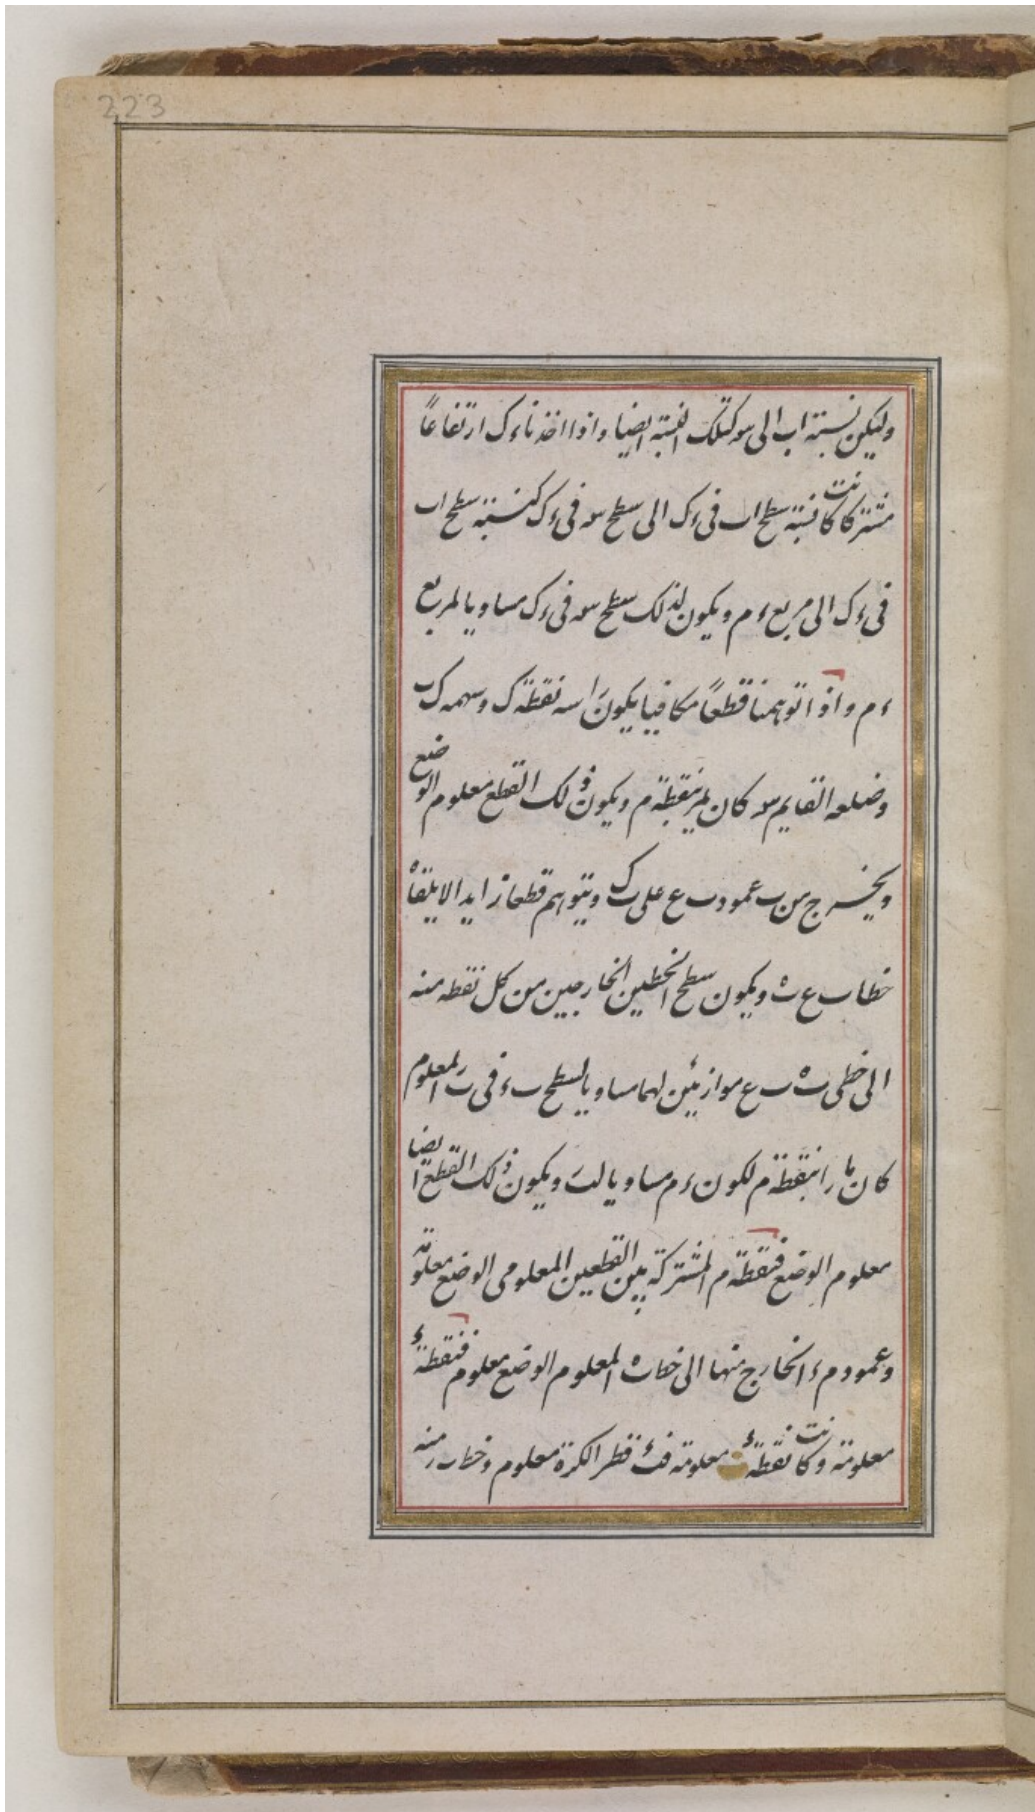 223
وليكن نسبة اب الى سه كتلك النسبة ايضا واذا اخذنا ءك ارتفاعاً
مشتركا كانت نسبة سطح اب فى ءك الى سطح سه فى ءك كنسبة سطح اب
فى ءك الى مربع ءم ويكون لذلك سطح سه فى ءك مساويا لمربع
ءم واذا توهمنا قطعاً مكافيا يكون راسه نقطة ك وسهمه ك ب
وضلعه القايم سه كان يمر بنقطة م ويكون ذلك القطع معلوم الوضع
ويخرج من ب عمود ب ع على ب ك ويتوهم قطعا زايدا لا يلقاه
خطا ب ع ب ه ويكون سطح الخطين الخارجين من كل نقطه منه
الى خطى ب ه ب ع موازيين لهما مساويا لسطح ب ء فى ب ر المعلوم
كان مارا بنقطة م لكون ءم مساويا لب ر ويكون ذلك القطع ايضا
معلوم الوضع فنقطة م المشتركة بين القطعين المعلومى الوضع معلومة
وعمود م ء الخارج منها الى خط ب ه المعلوم الوضع معلوم فنقطة ء
معلومة وكانت نقطة ب معلومة فب ء قطر الكرة معلوم وخط ب ر منه